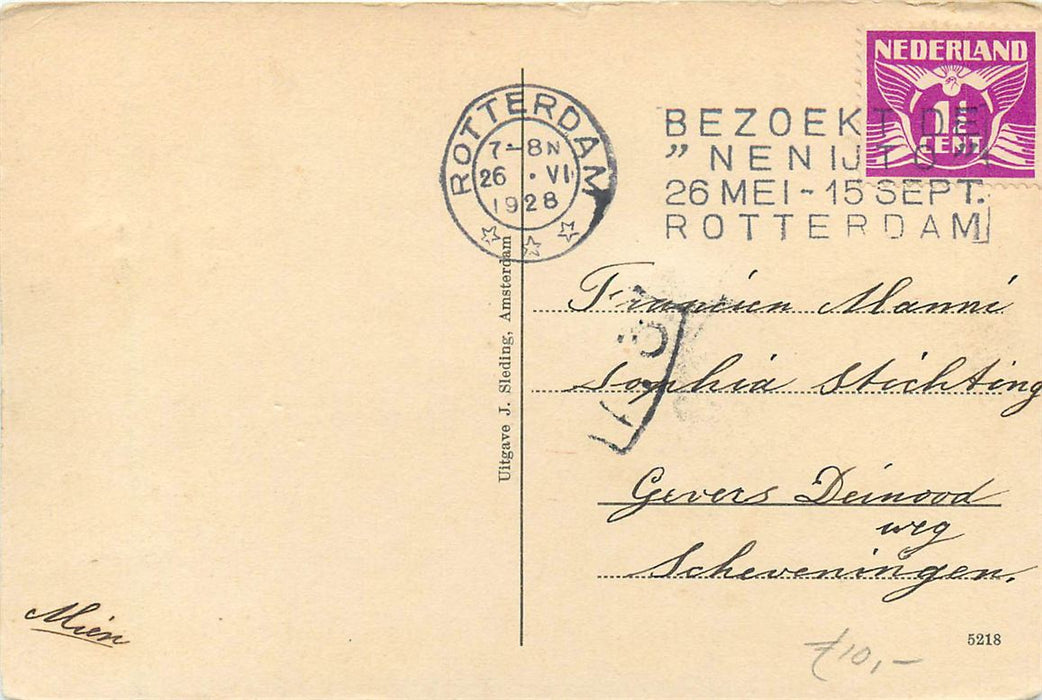 NEDERLAND
1½
CENT
ROTTERDAM
7-8N
26 . VI
1928
BEZOEKT DE
"NENIJTO"
26 MEI - 15 SEPT.
ROTTERDAM
Uitgave J. Sleding, Amsterdam
Francien Manni
Sophia Stichting
Gevers Deinood
weg
Scheveningen.
Mien
5218
€10,-